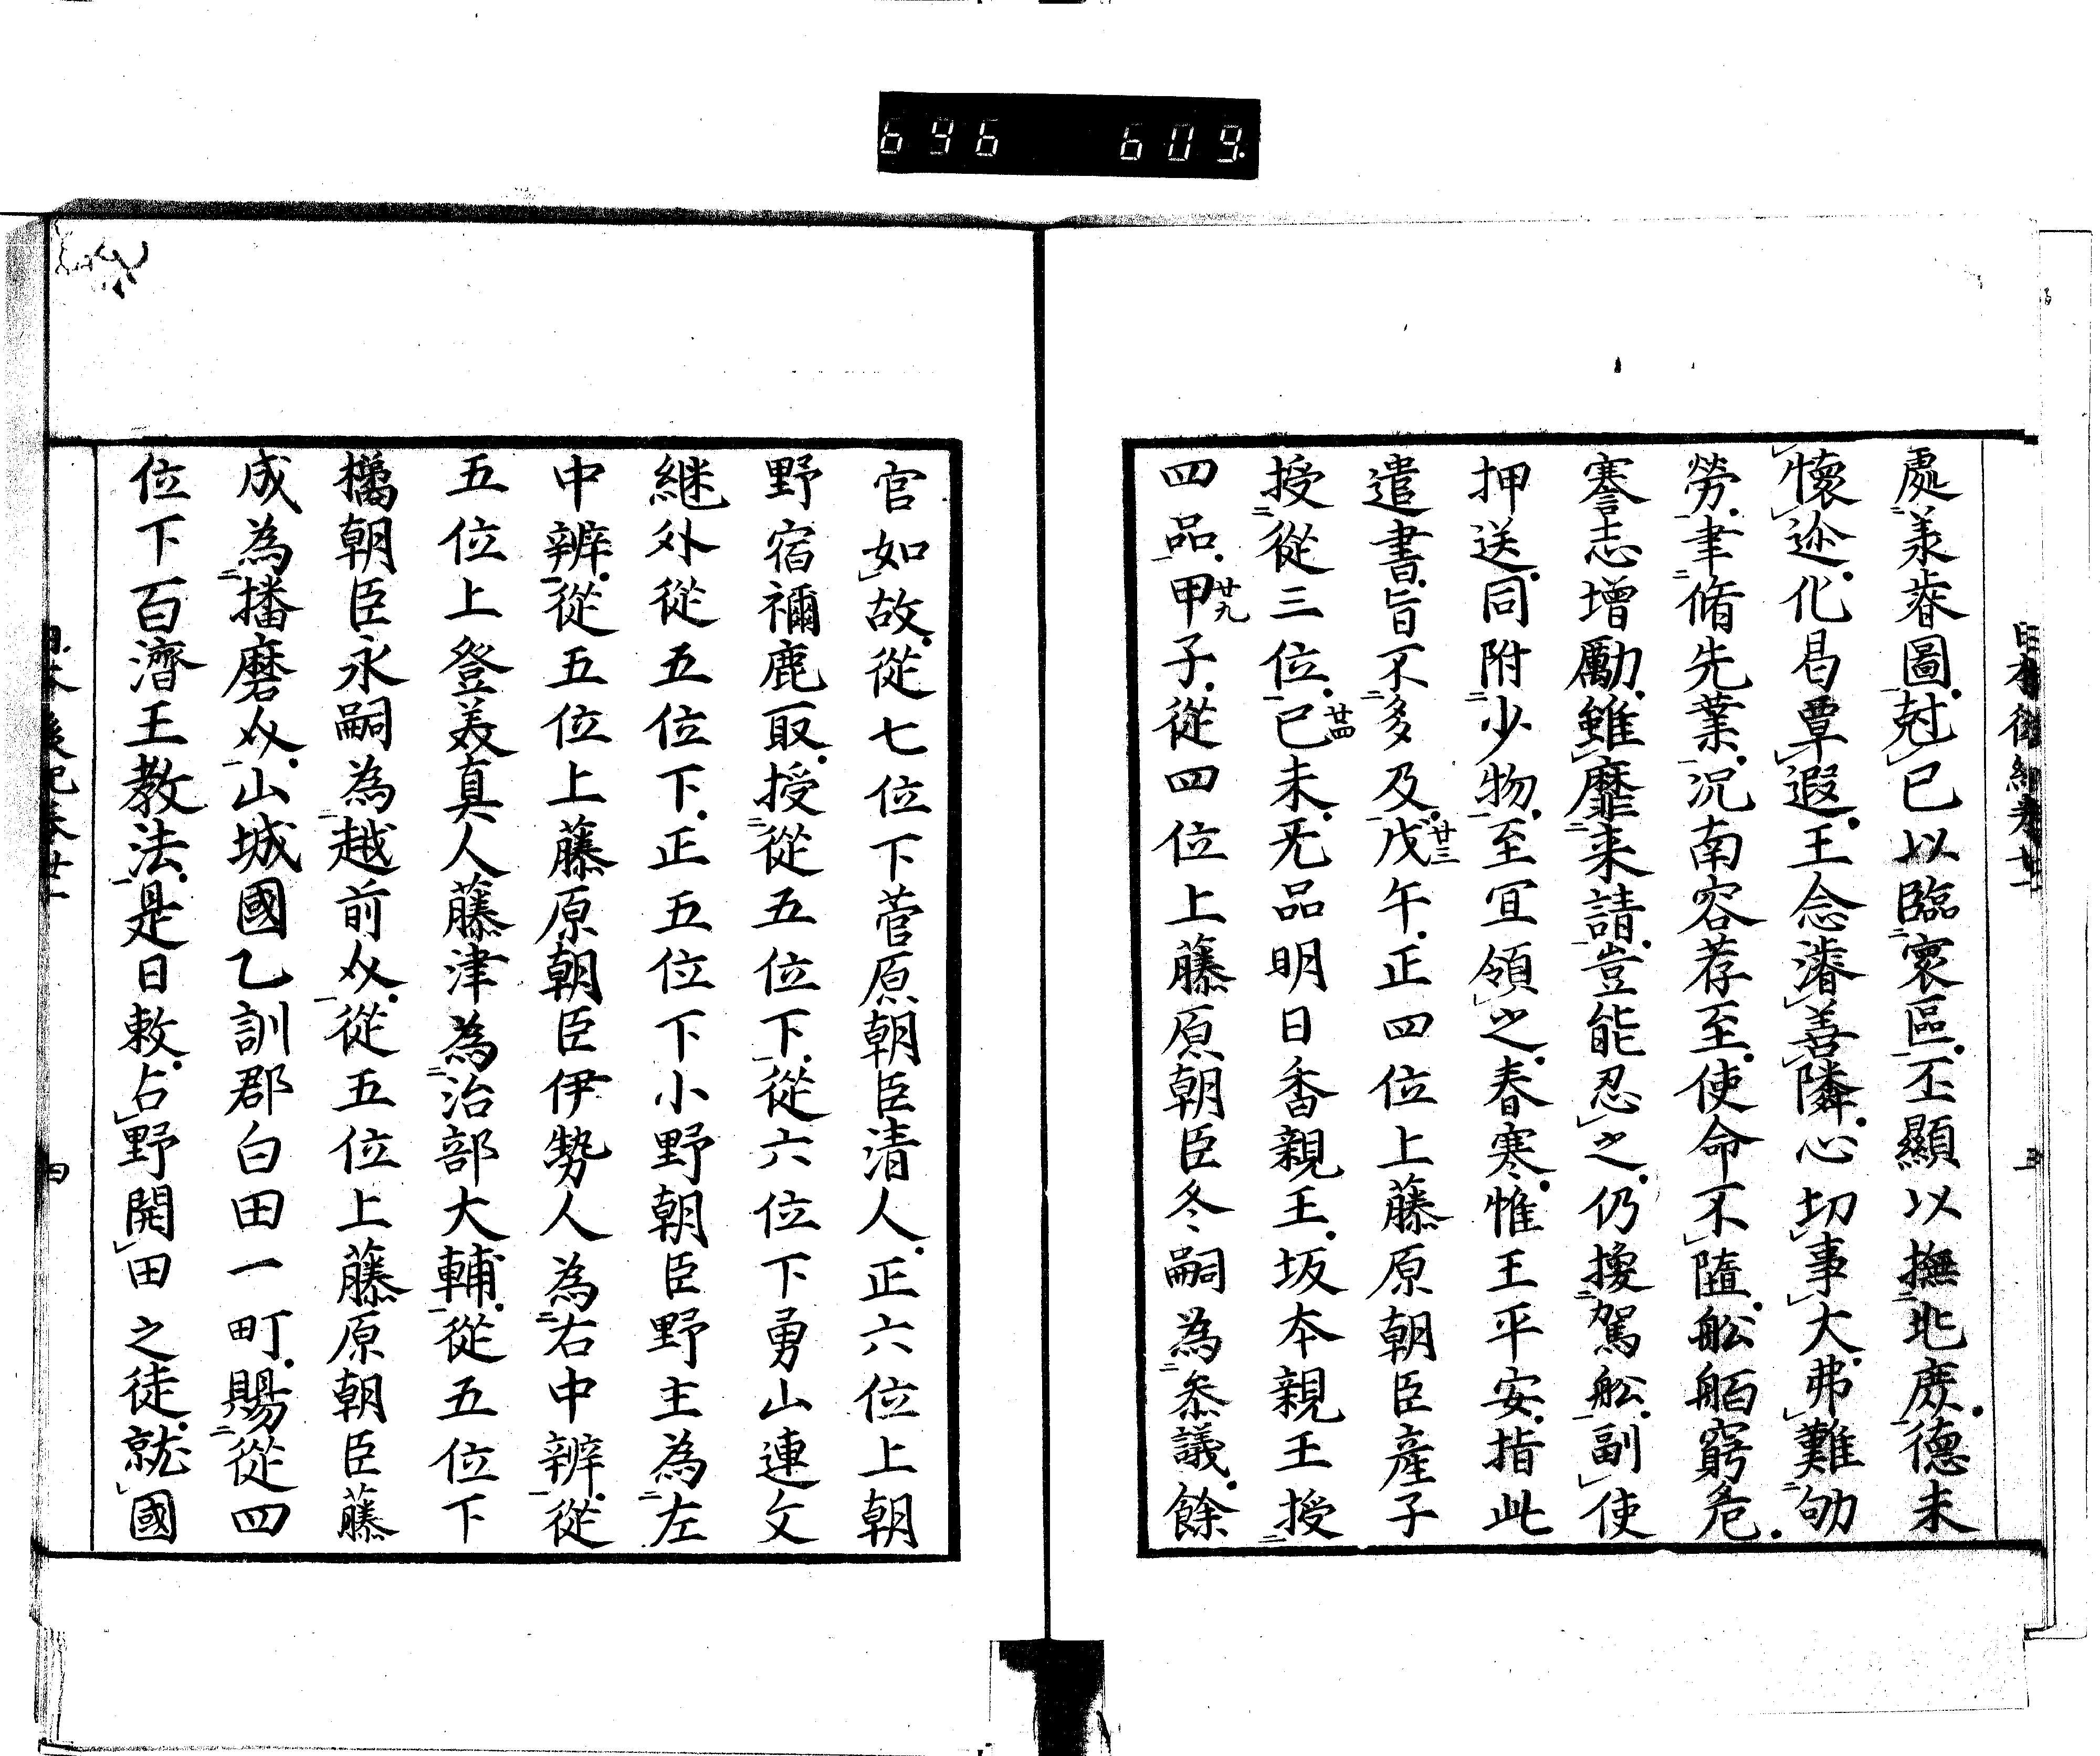 696 609
處羕眷圖尅已以臨寰區丕顯以撫兆庶德未
懷迩化曷覃遐王念濬善隣心切事大弗難劬
勞聿脩先業况南容荐至使命不墮舩舶窮危
謇志增勵雖靡来請豈能忍之仍換駕舩副使
押送同附少物至宜領之春寒惟王平安指此
遣書旨不多及戊午廿三正四位上藤原朝臣産子
授從三位己未廿四旡品明日香親王坂本親王授
四品甲子廿九從四位上藤原朝臣冬嗣為叅議餘
官如故從七位下菅原朝臣清人正六位上朝
野宿禰鹿取授從五位下從六位下勇山連文
継外從五位下正五位下小野朝臣野主為左
中辨從五位上藤原朝臣伊勢人為右中辨從
五位上登美真人藤津為治部大輔從五位下
橘朝臣永嗣為越前从從五位上藤原朝臣藤
成為播磨从山城國乙訓郡白田一町賜從四
位下百濟王教法是日敕占野開田之徒就國
日本後紀卷廿一
四